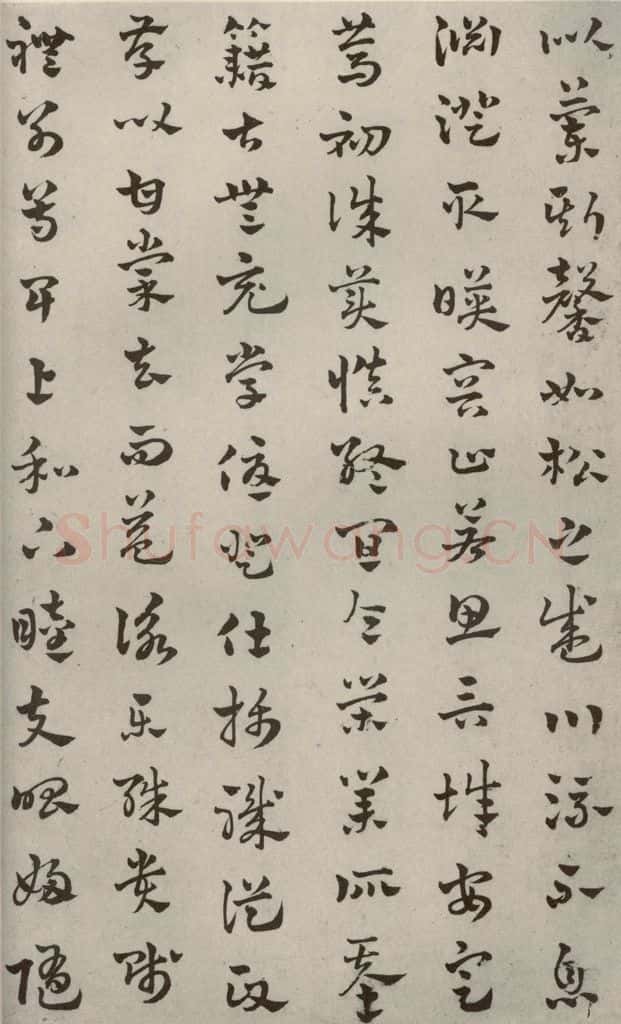 似蘭斯馨如松之盛川流不息
淵澄取暎容止若思言辭安定
篤初誠美慎終宜令榮業所基
籍甚無竟學優登仕攝職從政
存以甘棠去而益詠樂殊貴賤
禮別尊卑上和下睦夫唱婦隨
Shufawang.CN